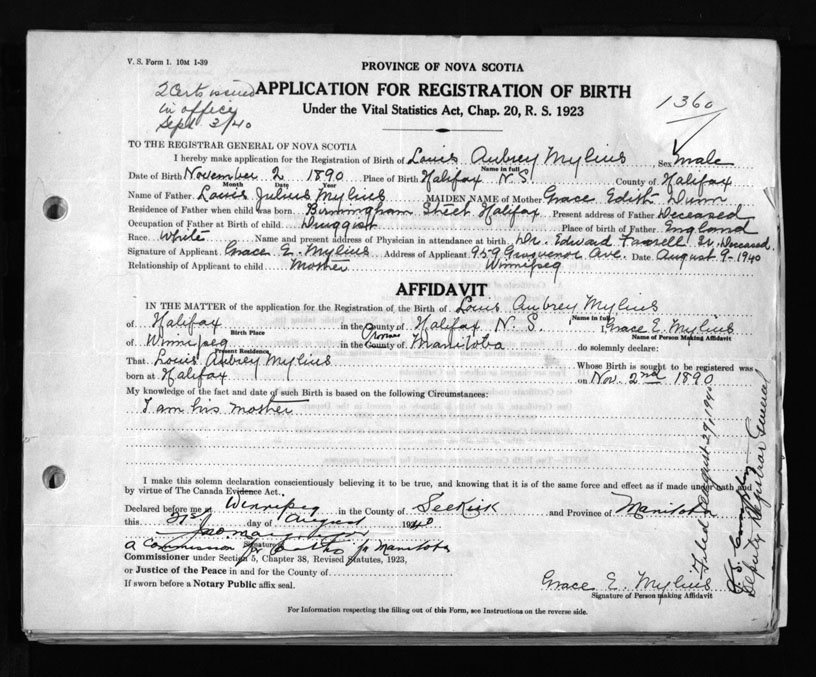 V. S. Form 1. 10M 1-39
PROVINCE OF NOVA SCOTIA
2 Certs issued
in office
Sept 3/40
APPLICATION FOR REGISTRATION OF BIRTH
1360
Under the Vital Statistics Act, Chap. 20, R. S. 1923
TO THE REGISTRAR GENERAL OF NOVA SCOTIA
I hereby make application for the Registration of Birth of Louis Aubrey Mylius Sex male
Name in full
Date of Birth November 2 1890 Place of Birth Halifax N.S. County of Halifax
Month Date Year
Name of Father Louis Julius Mylius MAIDEN NAME of Mother Grace Edith Dunn
Residence of Father when child was born Birmingham Street Halifax Present address of Father Deceased
Occupation of Father at Birth of child Druggist Place of birth of Father England
Race White Name and present address of Physician in attendance at birth Dr. Edward Farrell Sr. Deceased
Signature of Applicant Grace E. Mylius Address of Applicant 959 Grosvenor Ave. Date August 9-1940
Relationship of Applicant to child Mother Winnipeg
AFFIDAVIT
IN THE MATTER of the application for the Registration of the Birth of Louis Aubrey Mylius
Name in full
of Halifax in the County of Halifax N. S. I, Grace E. Mylius
Birth Place Name of Person Making Affidavit
of Winnipeg in the County of Manitoba do solemnly declare:
Present Residence
That Louis Aubrey Mylius Whose Birth is sought to be registered was
born at Halifax on Nov. 2nd 1890
My knowledge of the fact and date of such Birth is based on the following Circumstances:
I am his mother
I make this solemn declaration conscientiously believing it to be true, and knowing that it is of the same force and effect as if made under oath and
by virtue of The Canada Evidence Act.
Declared before me at Winnipeg in the County of Selkirk and Province of Manitoba
this day of August 1940
Signature
a Commissioner for Oaths for Manitoba
Commissioner under Section 5, Chapter 38, Revised Statutes, 1923,
or Justice of the Peace in and for the County of
If sworn before a Notary Public affix seal.
Grace E. Mylius
Signature of Person making Affidavit
For Information respecting the filling out of this Form, see Instructions on the reverse side.
Filed August 29, 1940
Deputy Registrar General